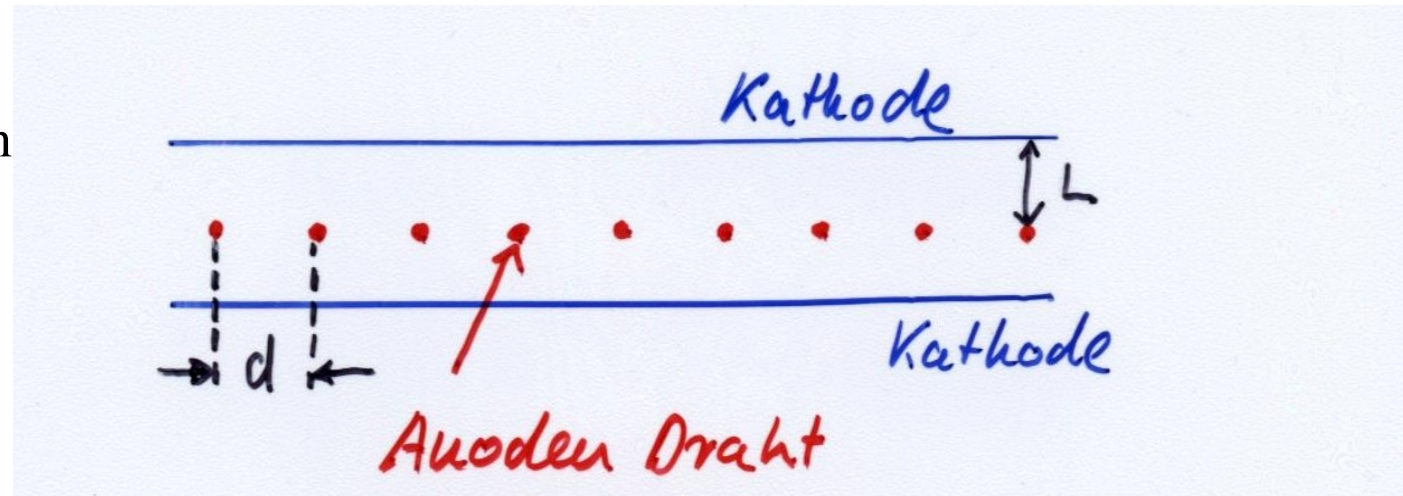 Kathode
n
L
Kathode
d
Anoden Draht